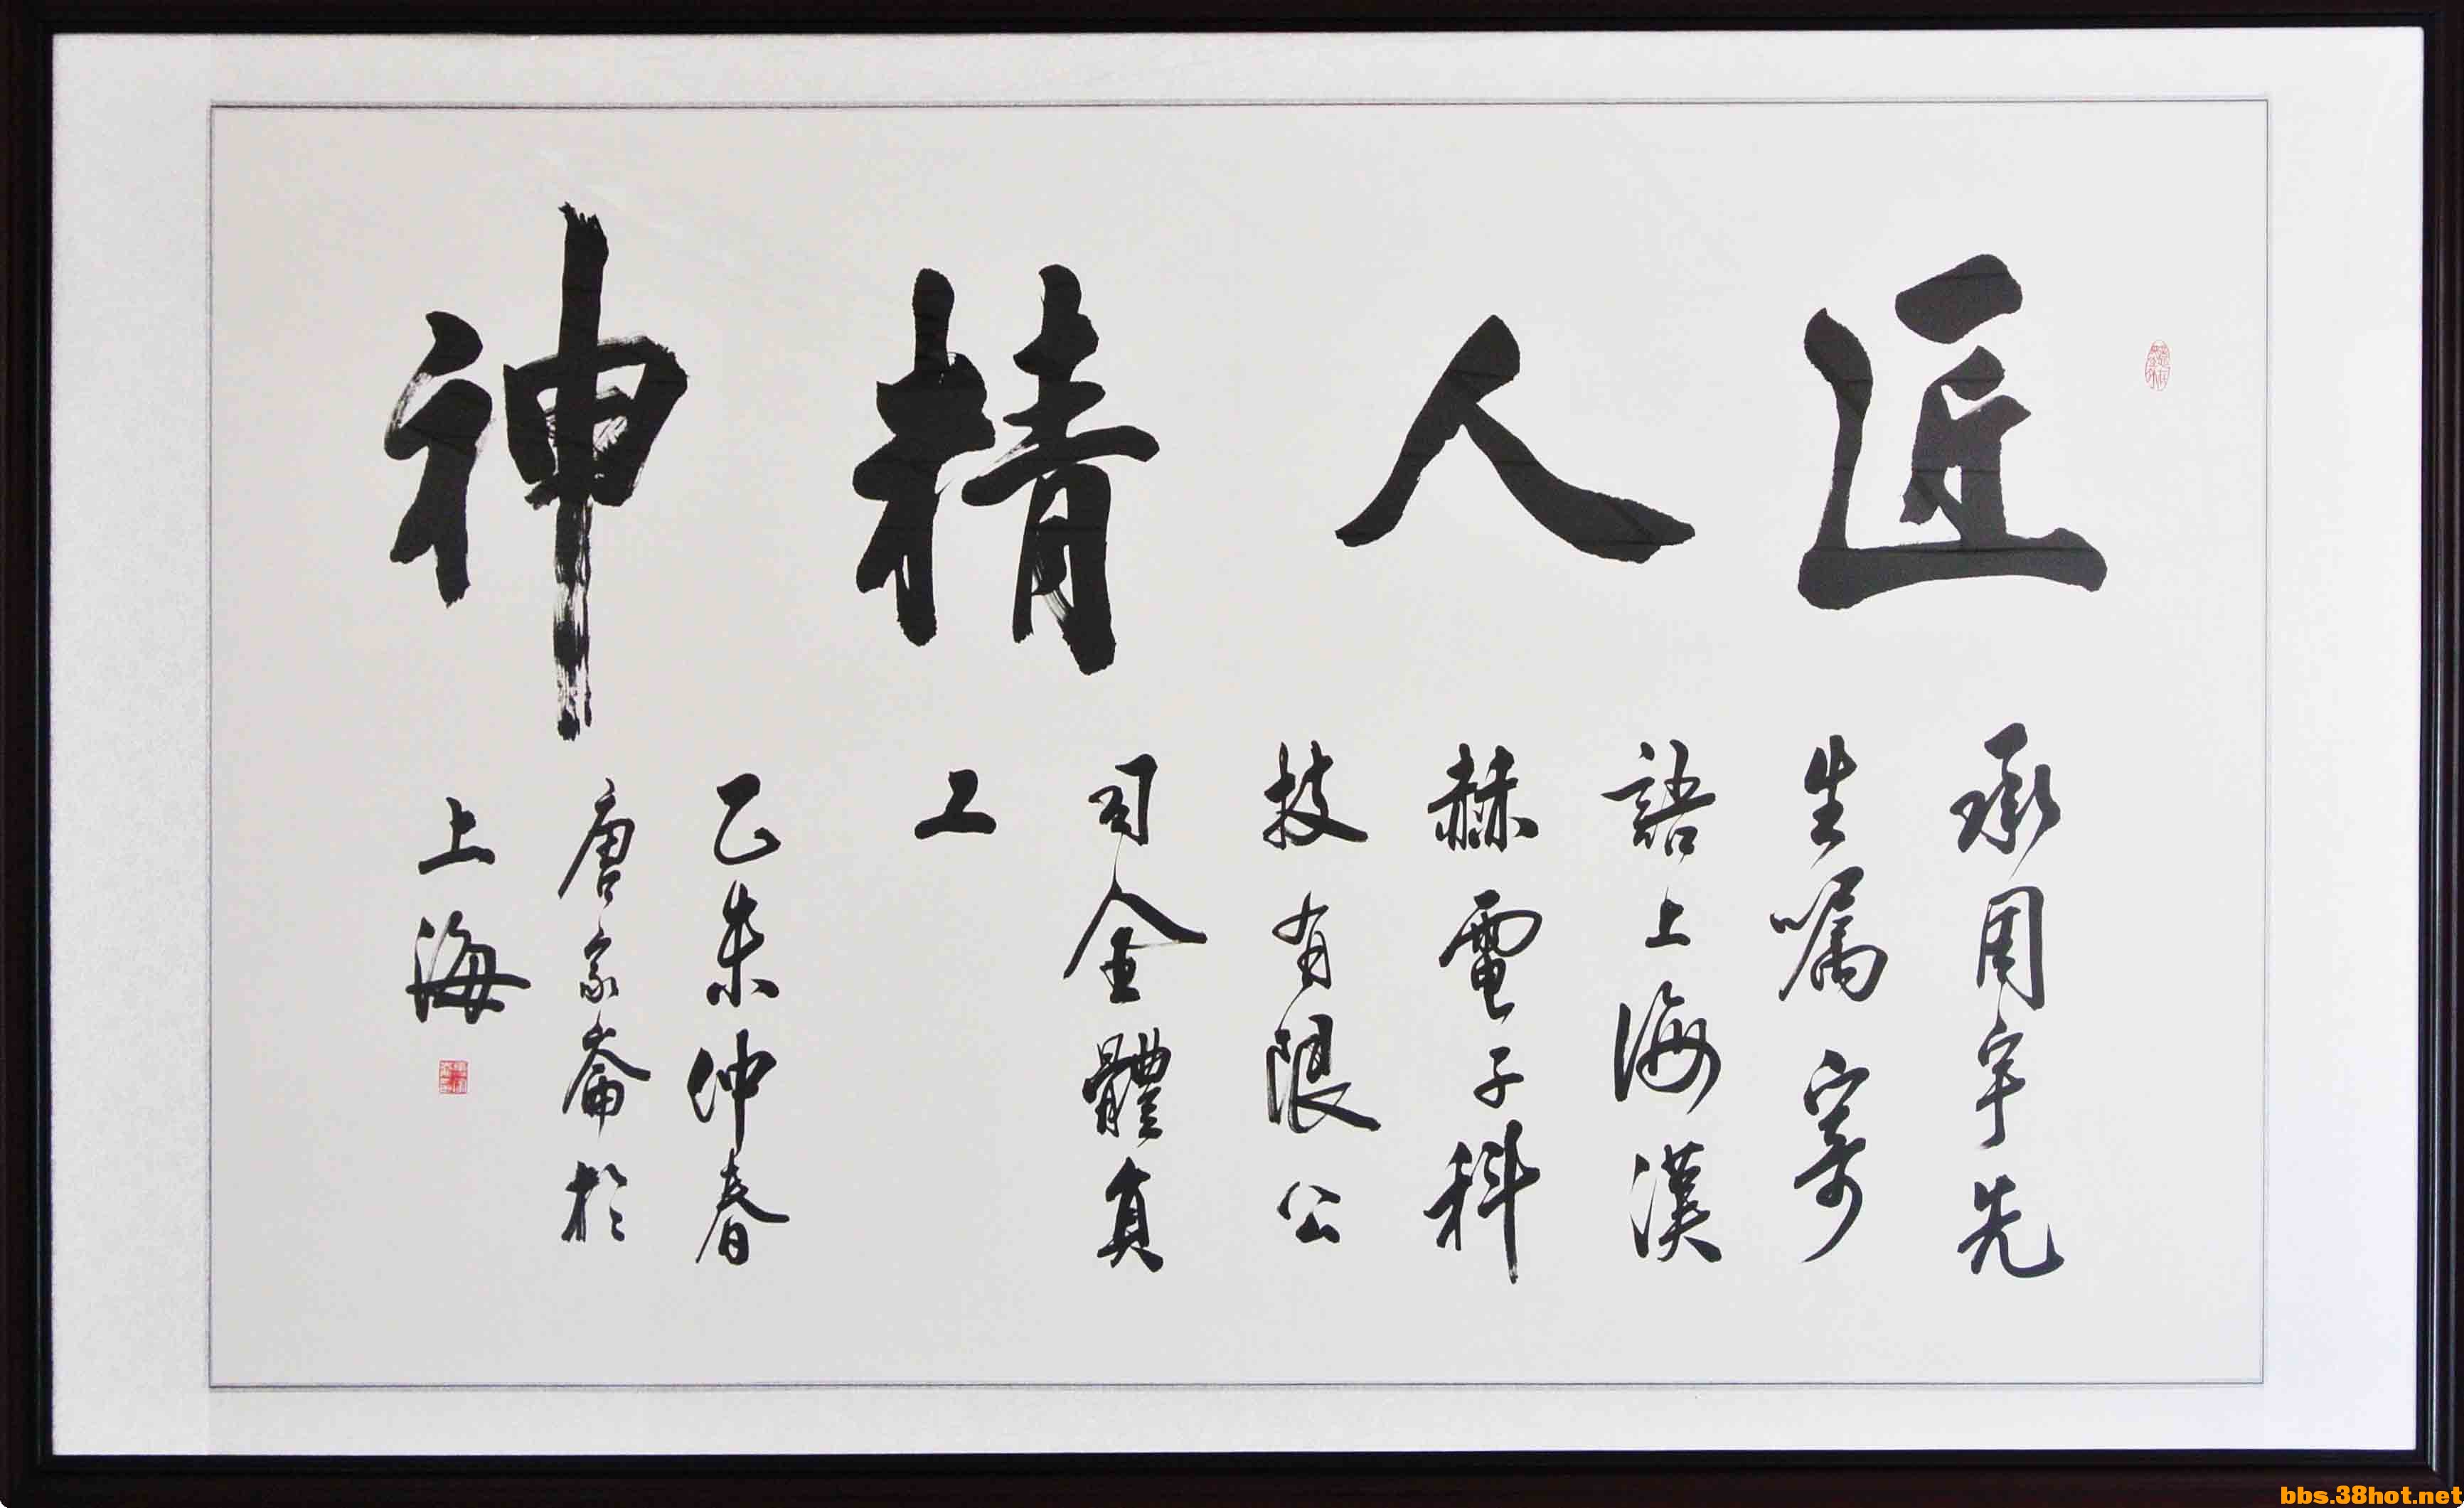 匠人精神
承周宇先
生嘱寄
語上海漢
赫電子科
技有限公
司全體員
工
乙未仲春
唐家崙於
上海
bbs.38hot.net